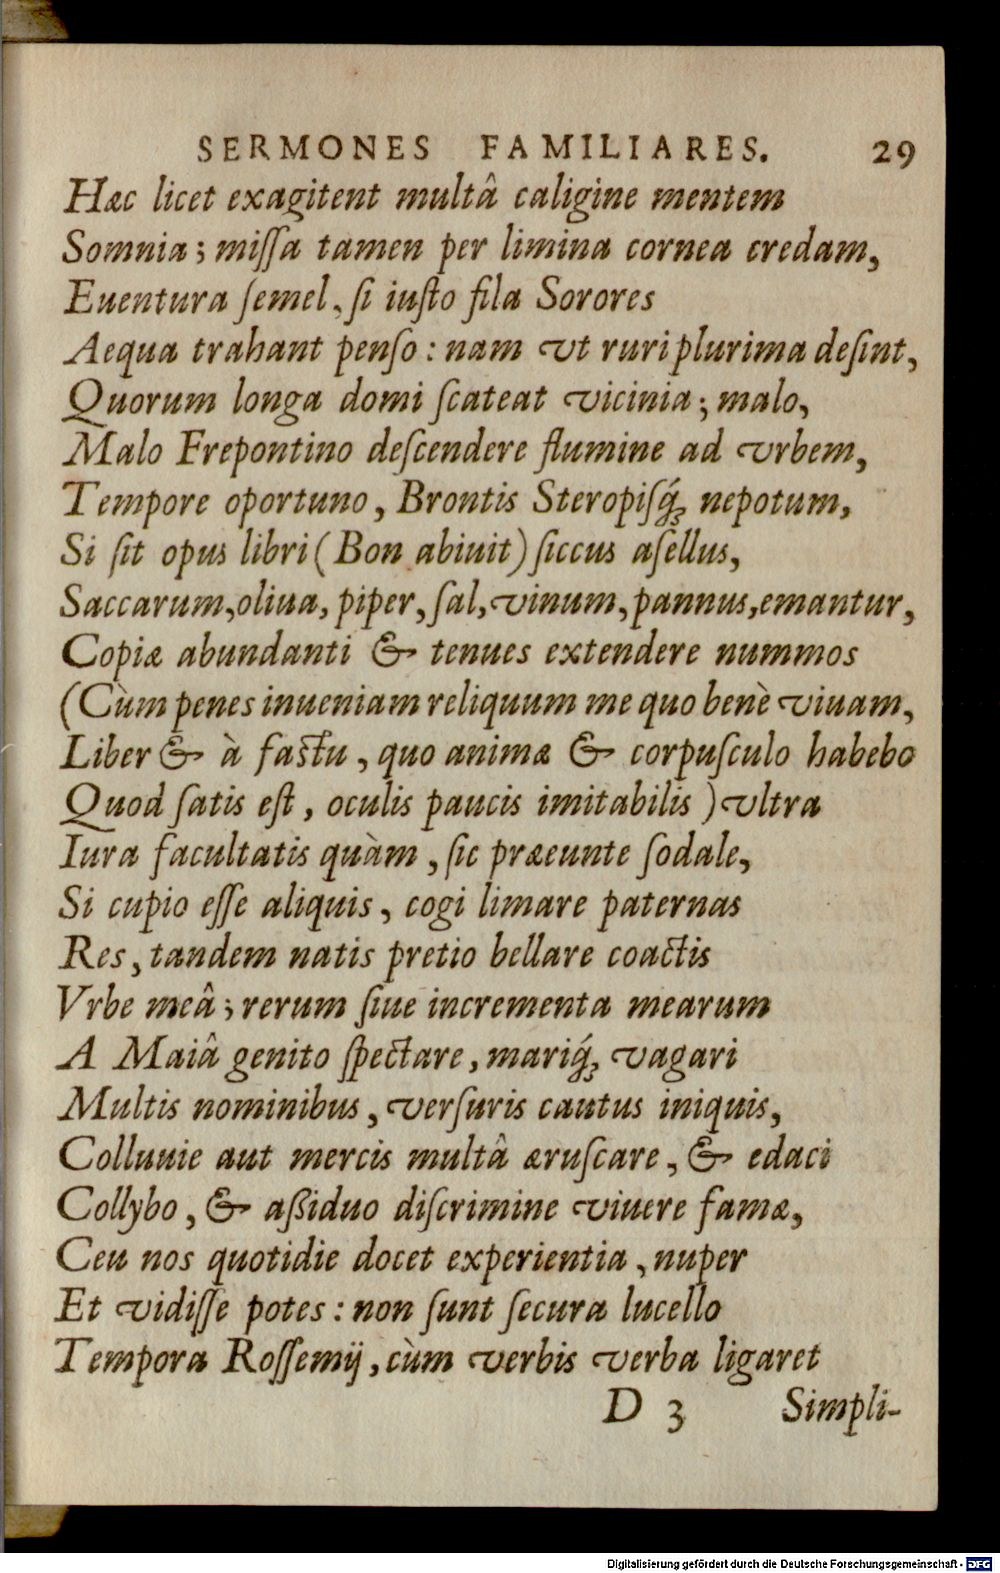 SERMONES FAMILIARES. 29
Hæc licet exagitent multâ caligine mentem
Somnia; miſſa tamen per limina cornea credam,
Euentura ſemel, ſi iuſto fila Sorores
Aequa trahant penſo: nam vt ruri plurima deſint,
Quorum longa domi ſcateat vicinia; malo,
Malo Frepontino deſcendere flumine ad vrbem,
Tempore oportuno, Brontis Steropiſq́; nepotum,
Si ſit opus libri (Bon abiuit) ſiccus aſellus,
Saccarum, oliua, piper, ſal, vinum, pannus, emantur,
Copiæ abundanti & tenues extendere nummos
(Cùm penes inueniam reliquum me quo benè viuam,
Liber & à faſtu, quo animæ & corpuſculo habebo
Quod ſatis eſt, oculis paucis imitabilis) vltra
Iura facultatis quàm, ſic præeunte ſodale,
Si cupio eſſe aliquis, cogi limare paternas
Res, tandem natis pretio bellare coactis
Vrbe meâ; rerum ſiue incrementa mearum
A Maiâ genito ſpectare, mariq́; vagari
Multis nominibus, verſuris cautus iniquis,
Colluuie aut mercis multâ æruſcare, & edaci
Collybo, & aßiduo diſcrimine viuere famæ,
Ceu nos quotidie docet experientia, nuper
Et vidiſſe potes: non ſunt ſecura lucello
Tempora Roſſemij, cùm verbis verba ligaret
D 3 Simpli-
Digitalisierung gefördert durch die Deutsche Forschungsgemeinschaft - DFG